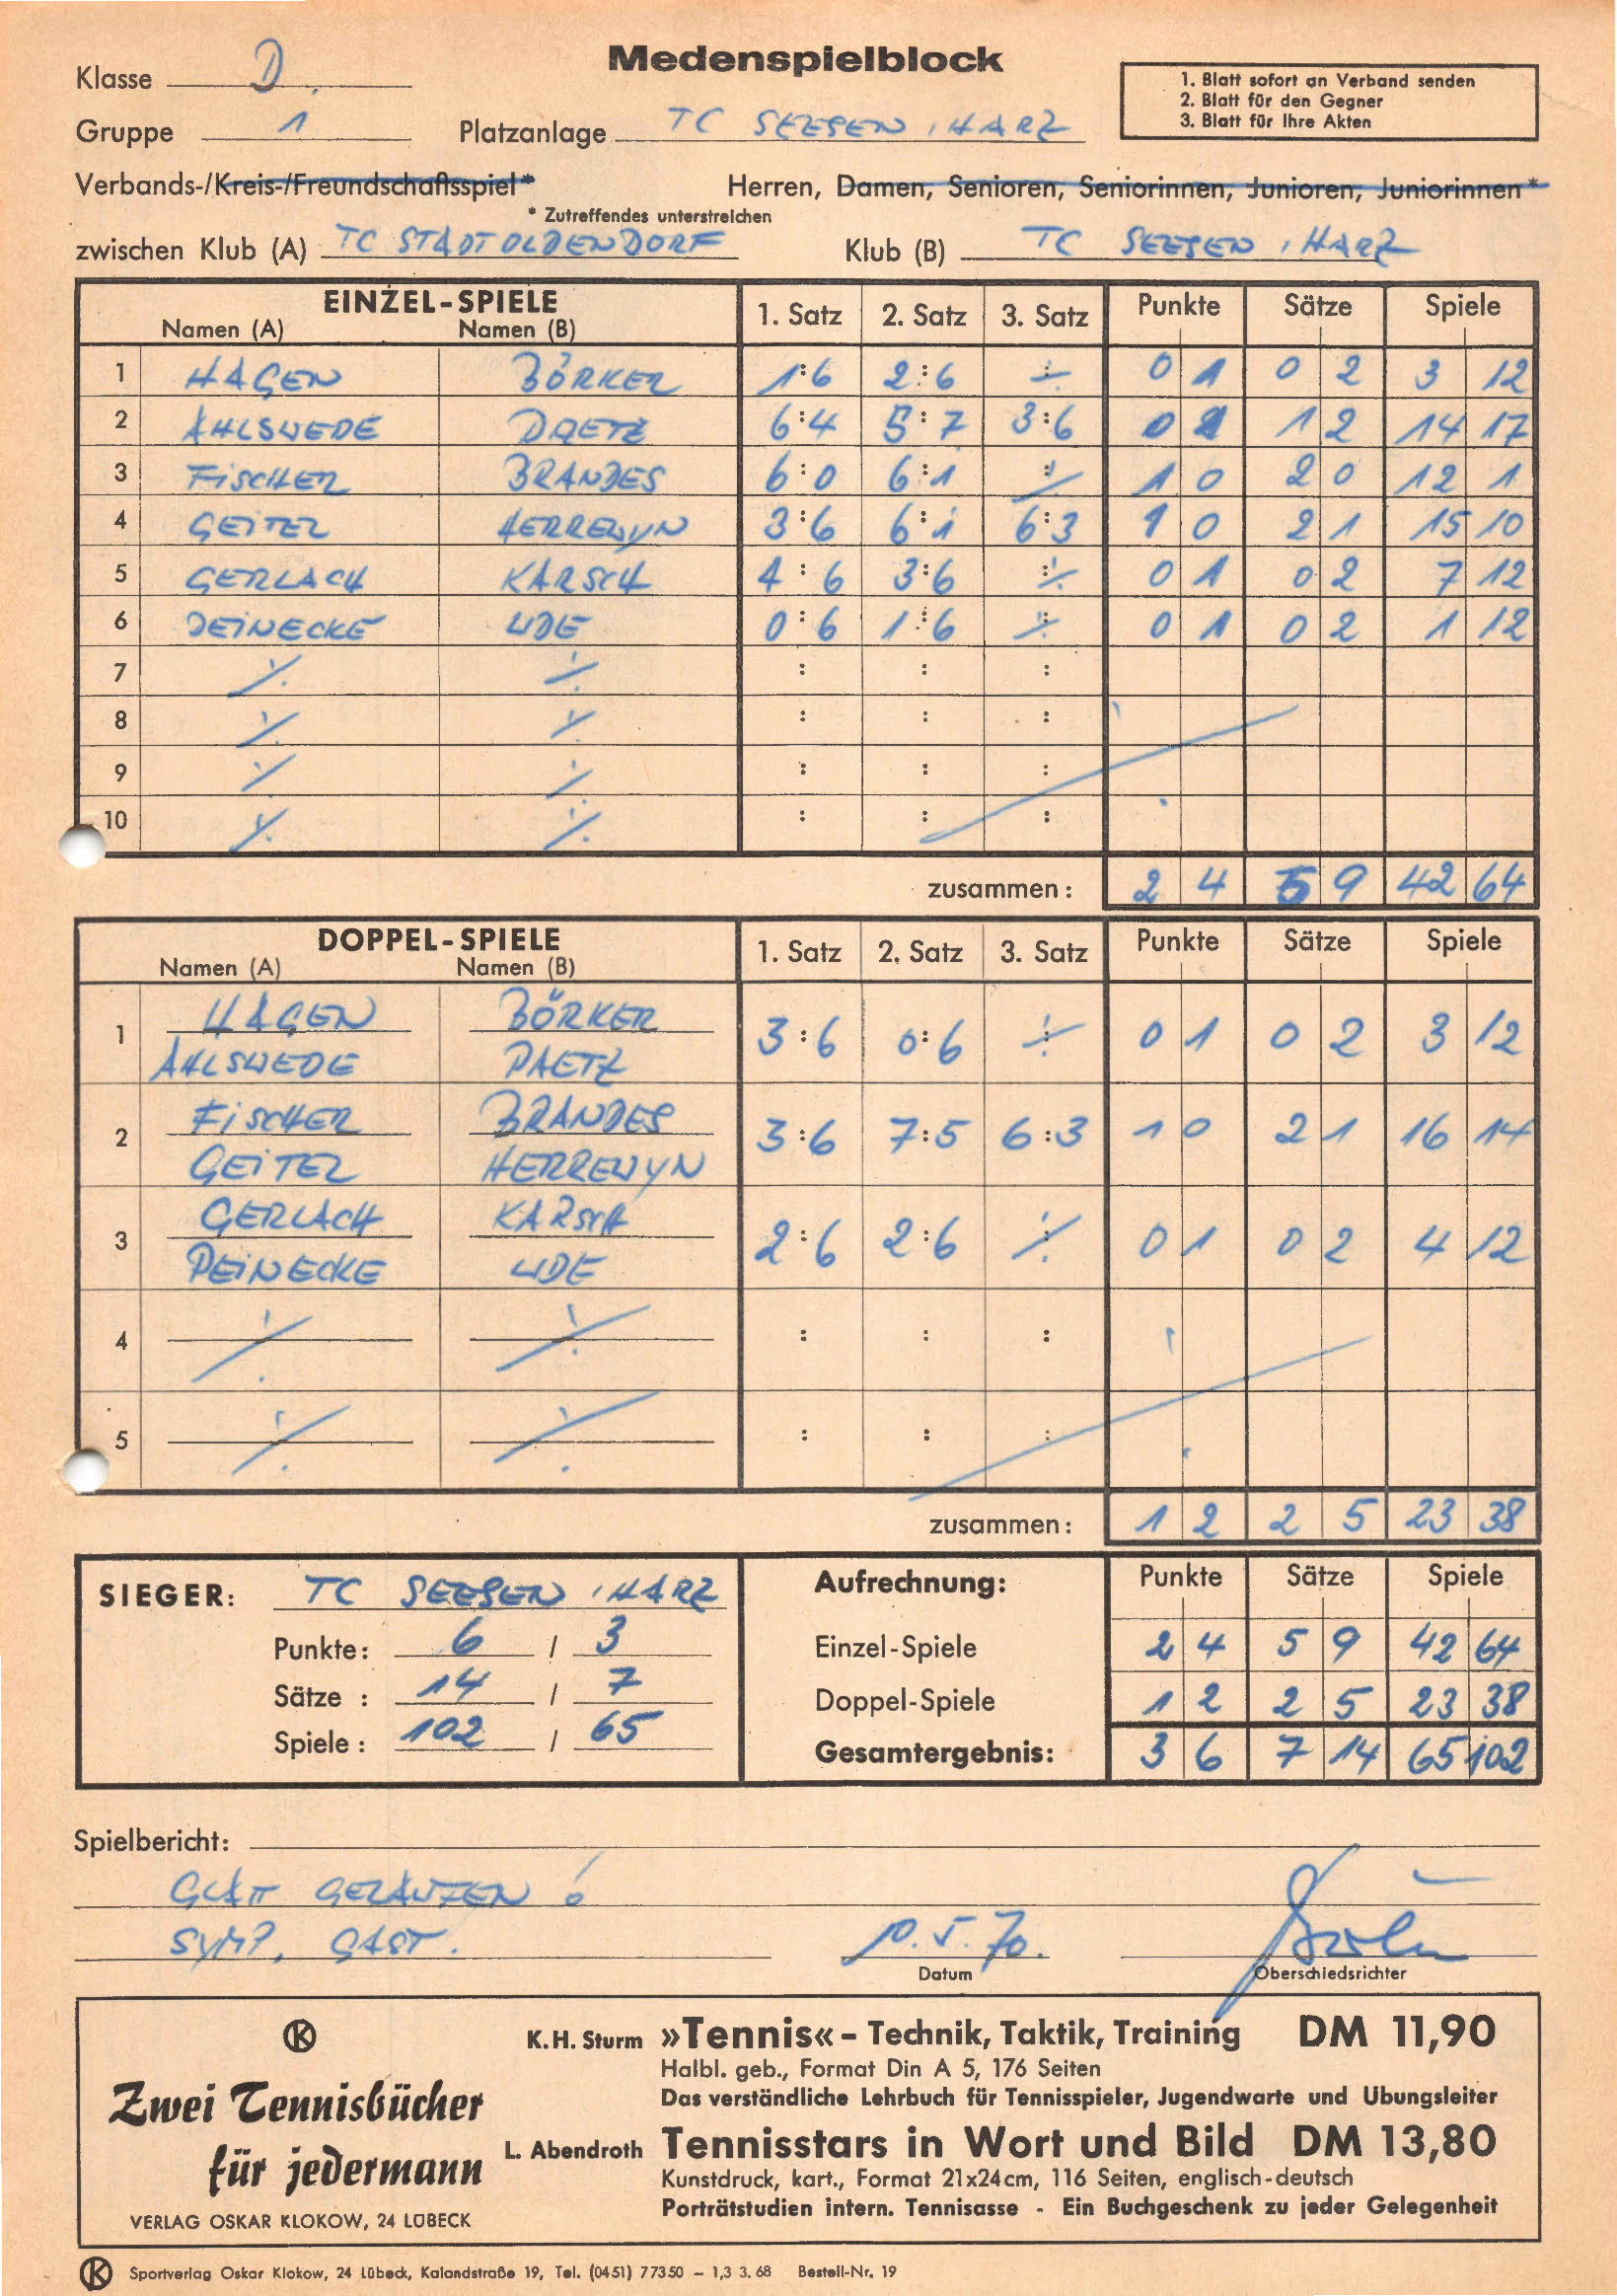 Medenspielblock
Klasse D.
Gruppe 1 Platzanlage TC SEESEN, HARZ
1. Blatt sofort an Verband senden
2. Blatt für den Gegner
3. Blatt für Ihre Akten
Verbands-/Kreis-/Freundschaftsspiel* Herren, Damen, Senioren, Seniorinnen, Junioren, Juniorinnen*
* Zutreffendes unterstreichen
zwischen Klub (A) TC STADTOLDENDORF Klub (B) TC SEESEN, HARZ
EINZEL-SPIELE 1. Satz 2. Satz 3. Satz Punkte Sätze Spiele
Namen (A) Namen (B)
1 HAGEN BÖRKER 1:6 2:6 ÷ 0 1 0 2 3 12
2 AHLSWEDE PAETZ 6:4 5:7 3:6 0 1 1 2 14 17
3 FISCHER BRANDES 6:0 6:1 ÷ 1 0 2 0 12 1
4 GEITEL HERREWYN 3:6 6:1 6:3 1 0 2 1 15 10
5 GERLACH KARSCH 4:6 3:6 ÷ 0 1 0 2 7 12
6 DEINECKE UDE 0:6 1:6 ÷ 0 1 0 2 1 12
7 ÷ ÷ : : :
8 ÷ ÷ : : :
9 ÷ ÷ : : :
10 ÷ ÷ : : :
zusammen: 2 4 5 9 42 64
DOPPEL-SPIELE 1. Satz 2. Satz 3. Satz Punkte Sätze Spiele
Namen (A) Namen (B)
HAGEN BÖRKER
1 3:6 0:6 ÷ 0 1 0 2 3 12
AHLSWEDE PAETZ
FISCHER BRANDES
2 3:6 7:5 6:3 1 0 2 1 16 14
GEITEL HERREWYN
GERLACH KARSCH
3 2:6 2:6 ÷ 0 1 0 2 4 12
DEINECKE UDE
4 ÷ ÷ : : :
5 ÷ ÷ : : :
zusammen: 1 2 2 5 23 38
SIEGER: TC SEESEN, HARZ
Punkte: 6 / 3
Sätze : 14 / 7
Spiele : 102 / 65
Aufrechnung: Punkte Sätze Spiele
Einzel-Spiele 2 4 5 9 42 64
Doppel-Spiele 1 2 2 5 23 38
Gesamtergebnis: 3 6 7 14 65 102
Spielbericht:
GLATT GELAUFEN !
SYMP. GAST. 10.5.70.
Datum Oberschiedsrichter
K
Zwei Tennisbücher
für jedermann
VERLAG OSKAR KLOKOW, 24 LÜBECK
K. H. Sturm »Tennis« – Technik, Taktik, Training DM 11,90
Halbl. geb., Format Din A 5, 176 Seiten
Das verständliche Lehrbuch für Tennisspieler, Jugendwarte und Übungsleiter
L. Abendroth Tennisstars in Wort und Bild DM 13,80
Kunstdruck, kart., Format 21x24cm, 116 Seiten, englisch-deutsch
Porträtstudien intern. Tennisasse - Ein Buchgeschenk zu jeder Gelegenheit
K Sportverlag Oskar Klokow, 24 Lübeck, Kalandstraße 19, Tel. (0451) 77350 – 1,3 3. 68 Bestell-Nr. 19